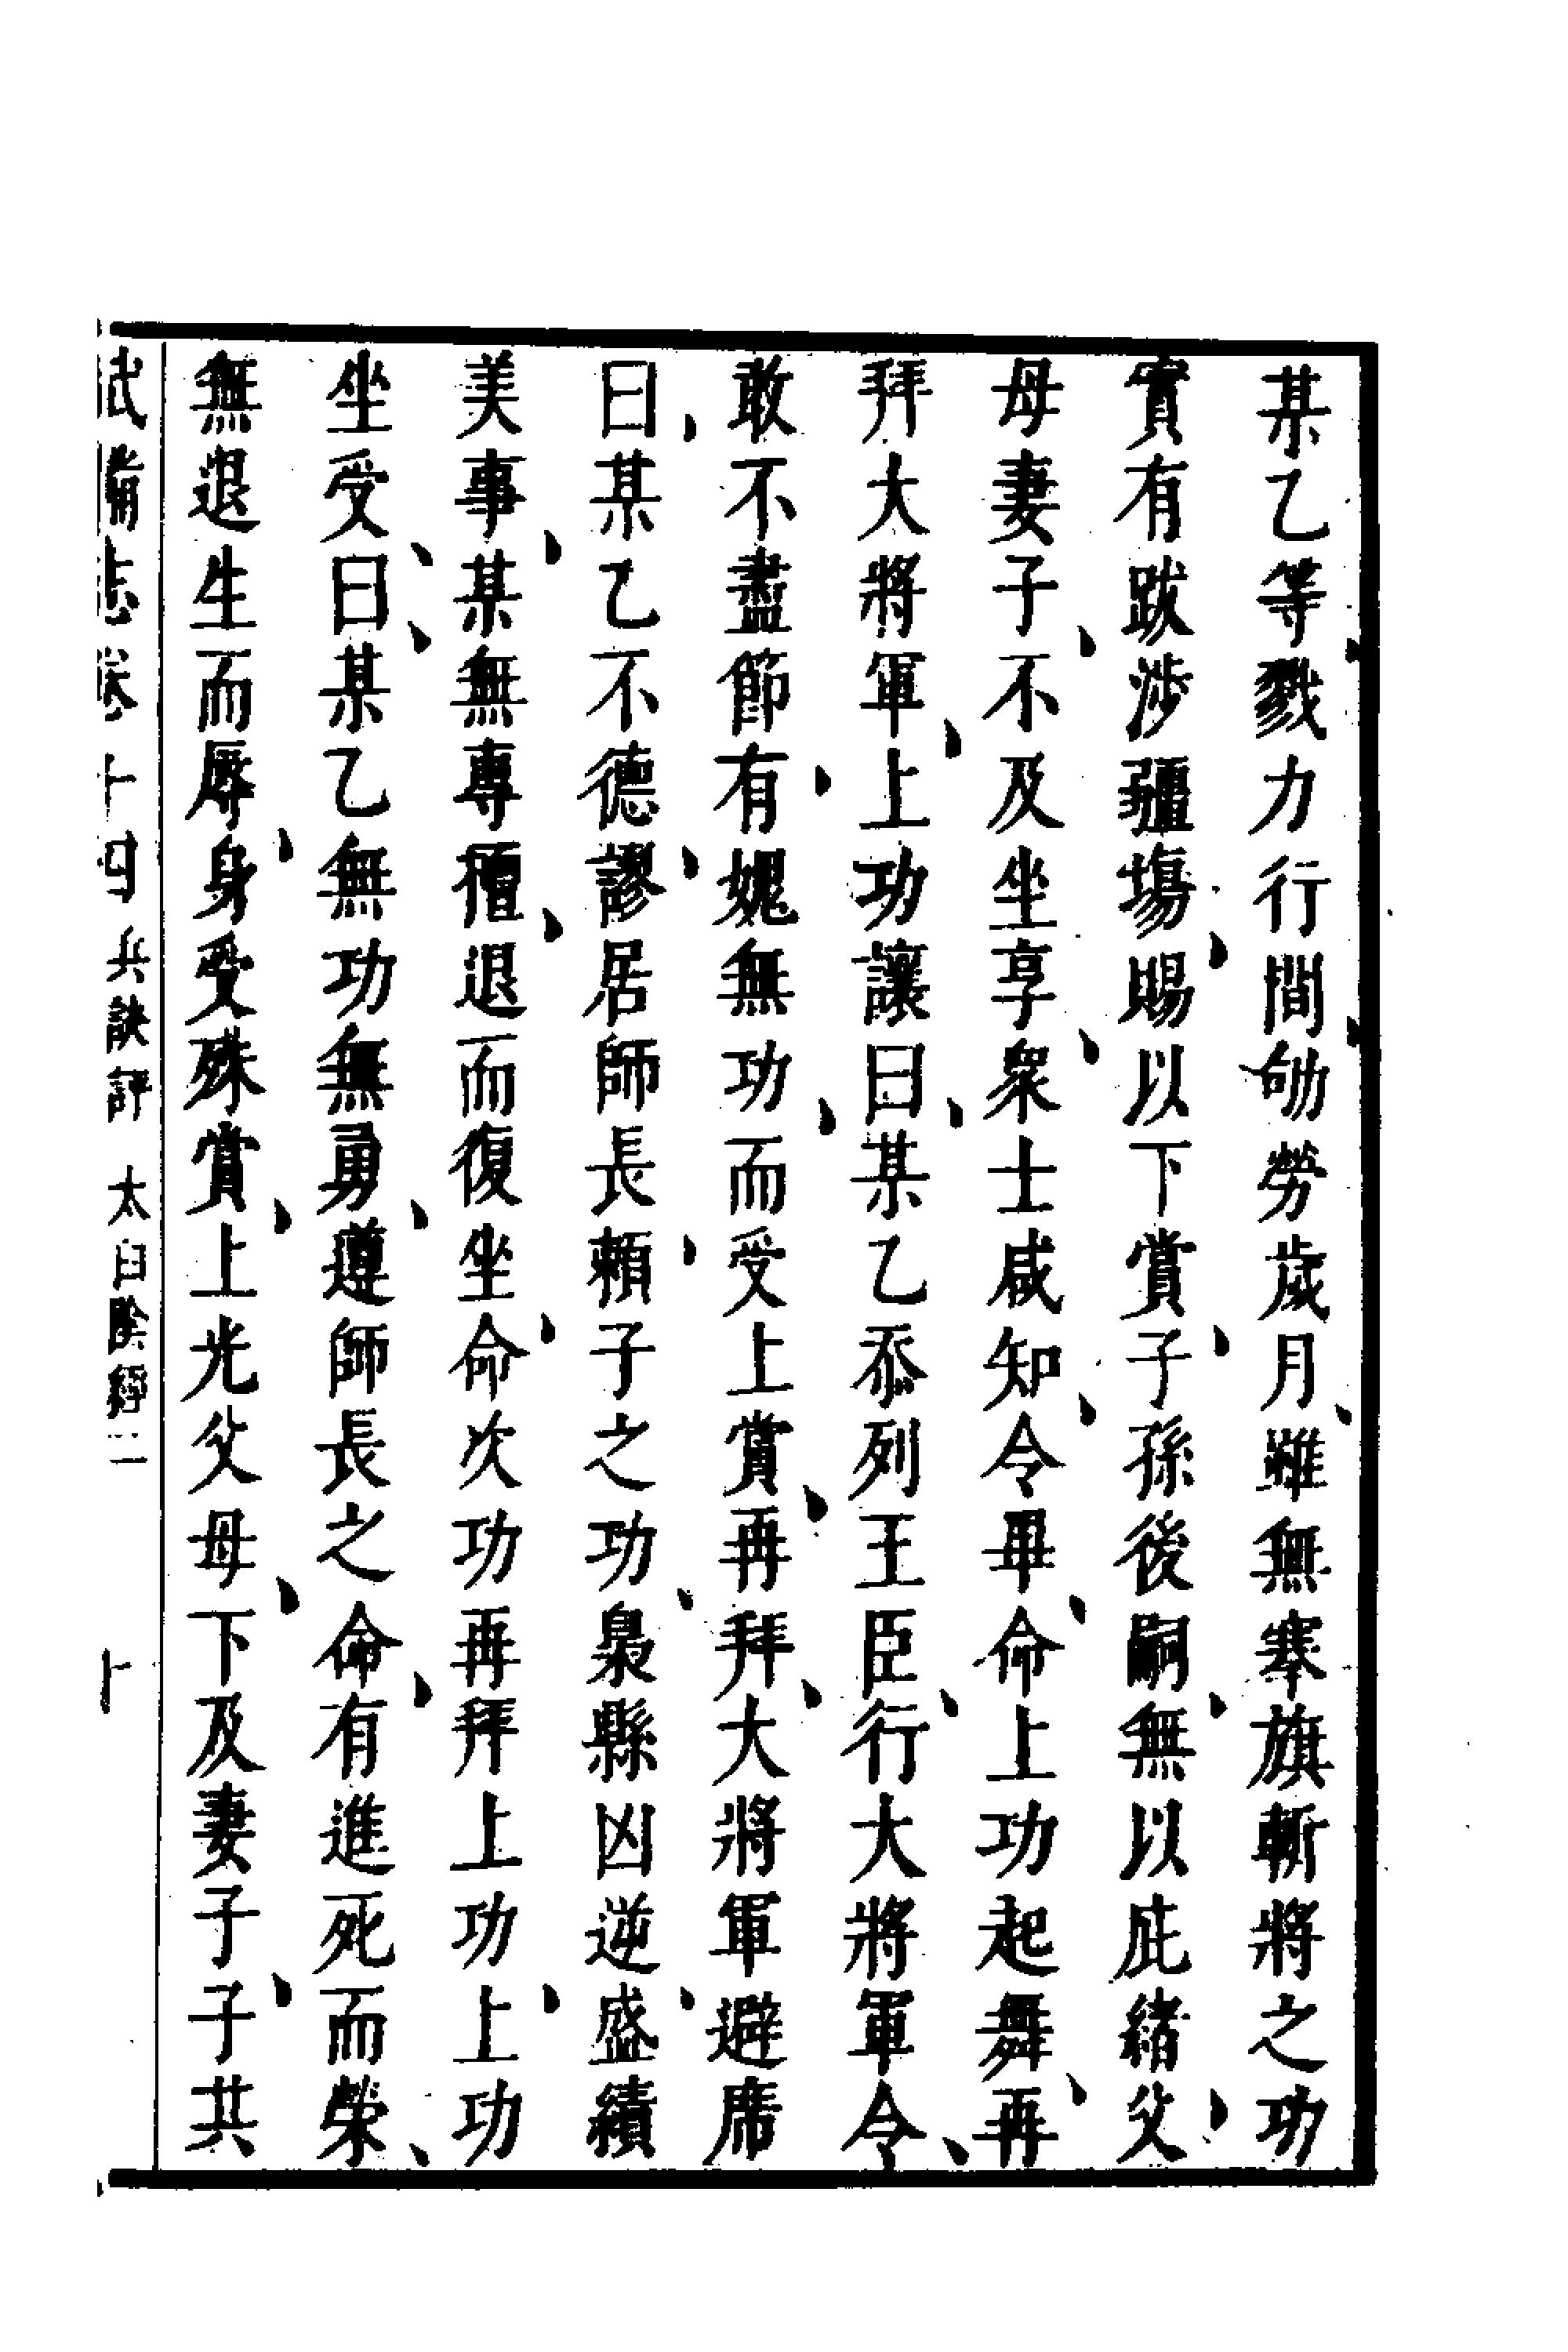 某乙等戮力行間劬勞歲月雖無搴旗斬將之功
實有跋涉疆塲賜以下賞子孫後嗣無以庇緒父
母妻子不及坐享衆士咸知令畢命上功起舞再
拜大將軍上功讓曰某乙忝列王臣行大將軍令
敢不盡節有媿無功而受上賞再拜大將軍避席
曰某乙不德謬居師長賴子之功梟縣凶逆盛績
美事某無專擅退而復坐命次功再拜上功上功
坐受曰某乙無功無勇遵師長之命有進死而榮
無退生而辱身受殊賞上光父母下及妻子子共
武備志卷十四兵訣評 太白陰經二 十